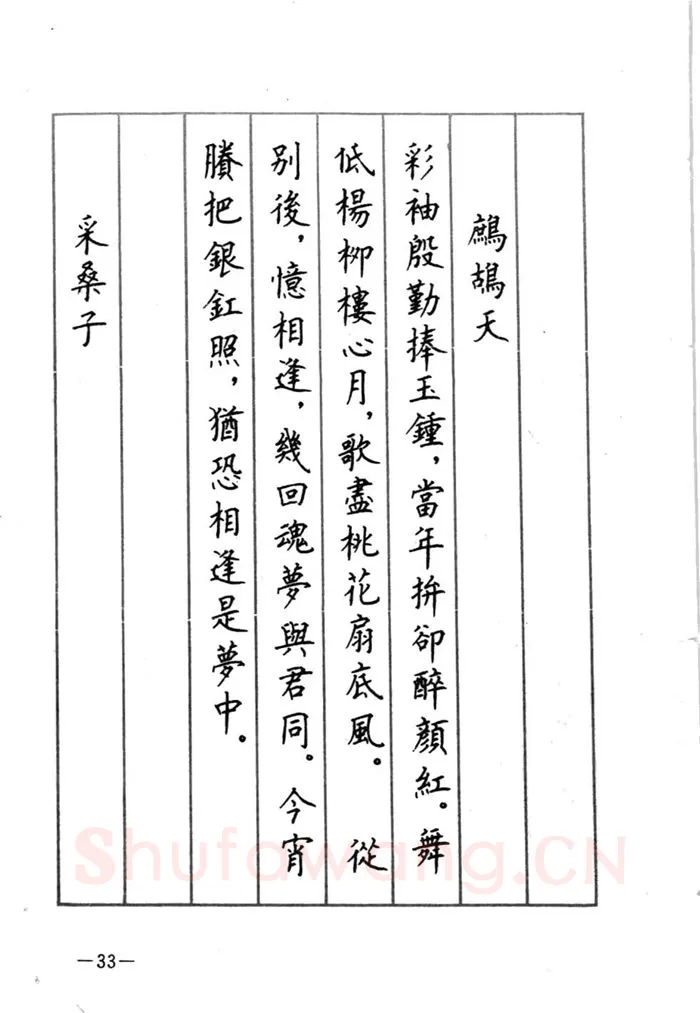 鷓鴣天
彩袖殷勤捧玉鍾，當年拚卻醉顏紅。舞
低楊柳樓心月，歌盡桃花扇底風。　從
別後，憶相逢，幾回魂夢與君同。今宵
賸把銀釭照，猶恐相逢是夢中。
采桑子
—33—
Shufawang.CN